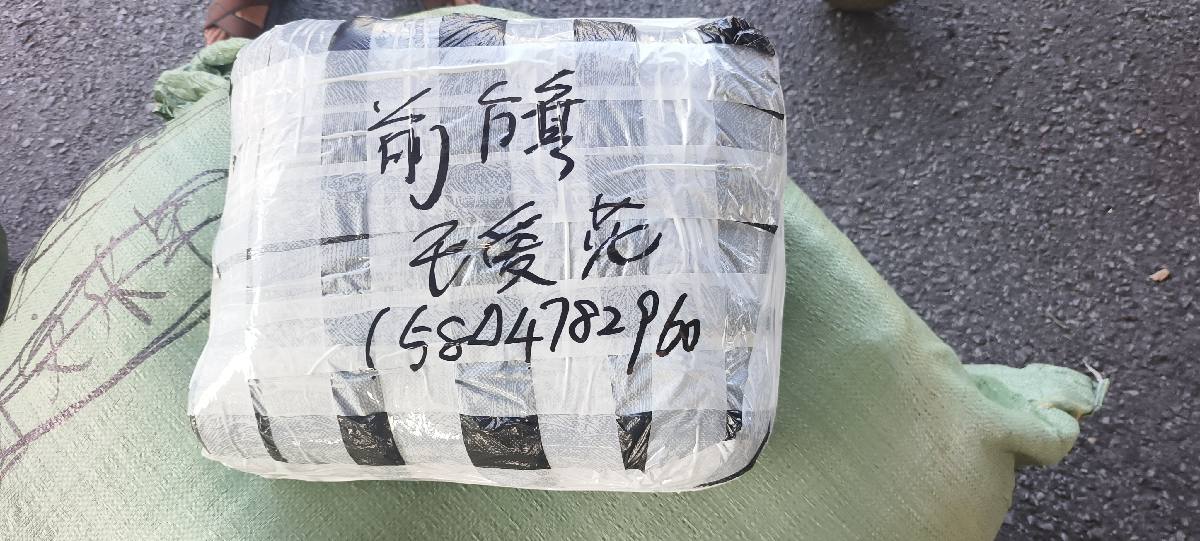 前旗
王爱花
15804782960